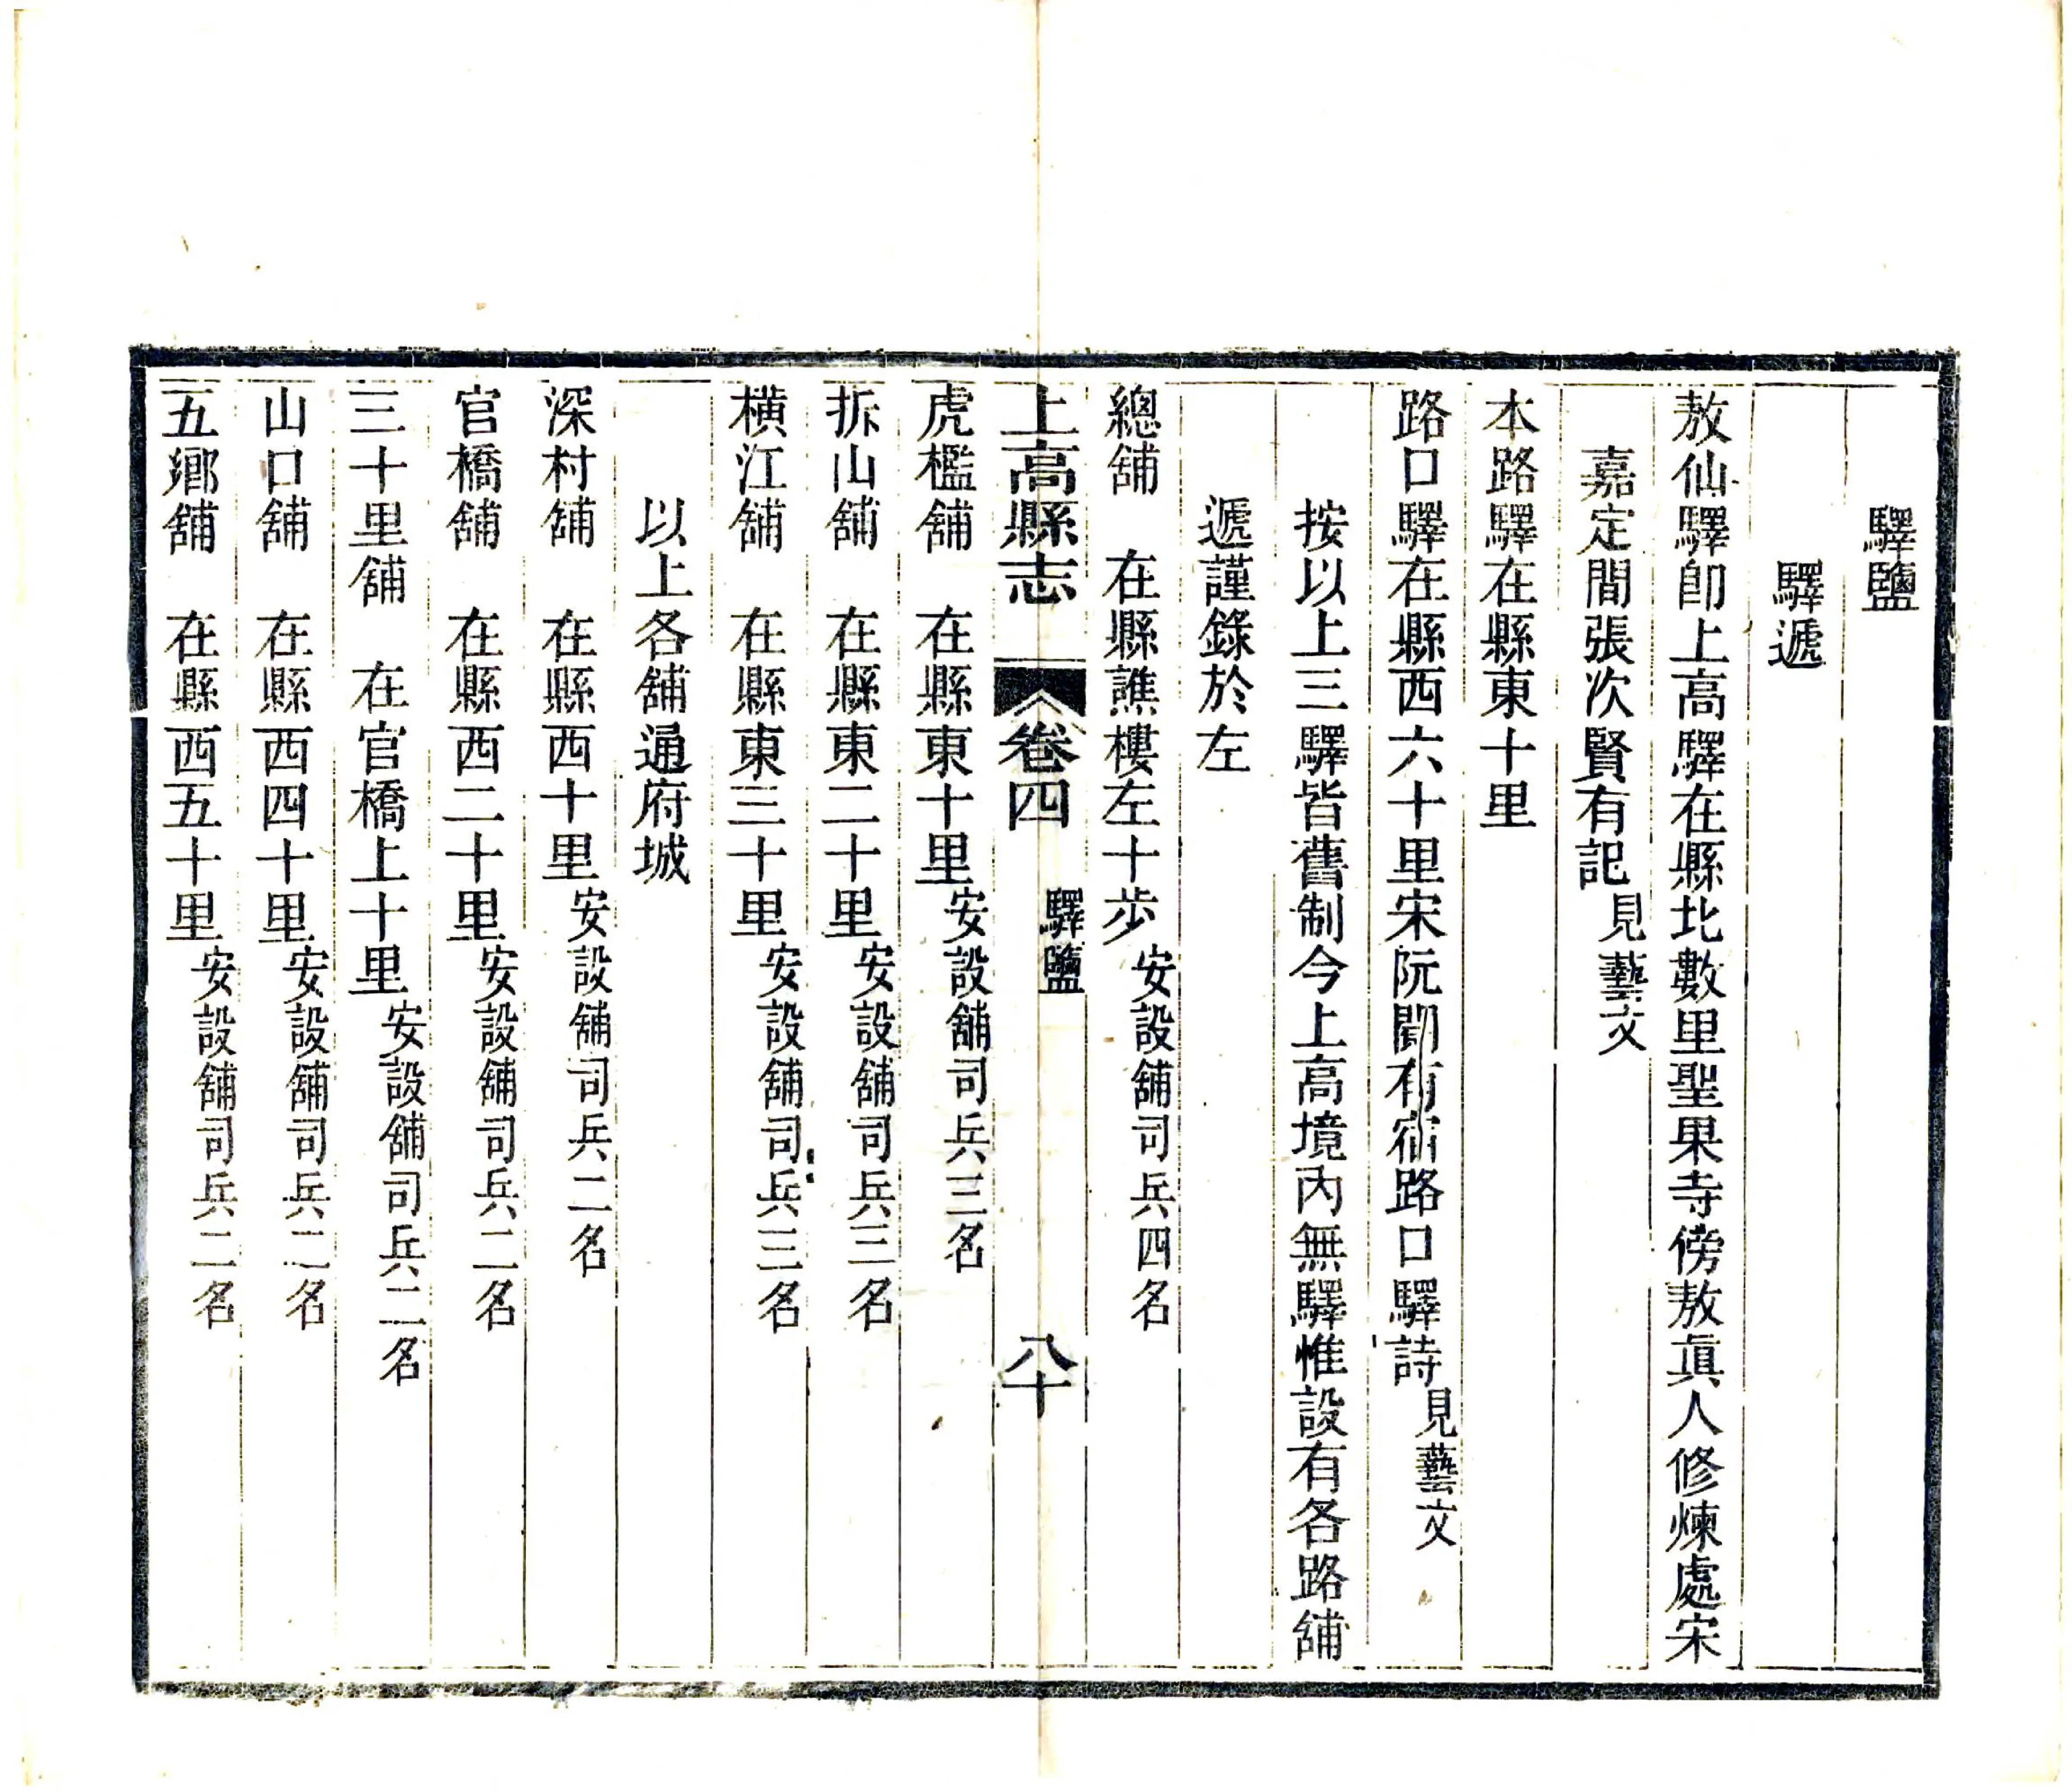 驛鹽
驛遞
敖仙驛卽上高驛在縣北數里聖果寺傍敖眞人修煉處宋
嘉定間張次賢有記見藝文
本路驛在縣東十里
路口驛在縣西六十里宋阮閱有宿路口驛詩見藝文
按以上三驛皆舊制今上高境內無驛惟設有各路舖
遞謹錄於左
總舖　在縣譙樓左十步安設舖司兵四名
上高縣志　卷四　驛鹽　八十
虎檻舖　在縣東十里安設舖司兵三名
拆山舖　在縣東二十里安設舖司兵三名
橫江舖　在縣東三十里安設舖司兵三名
以上各舖通府城
深村舖　在縣西十里安設舖司兵二名
官橋舖　在縣西二十里安設舖司兵二名
三十里舖　在官橋上十里安設舖司兵二名
山口舖　在縣西四十里安設舖司兵二名
五鄕舖　在縣西五十里安設舖司兵二名